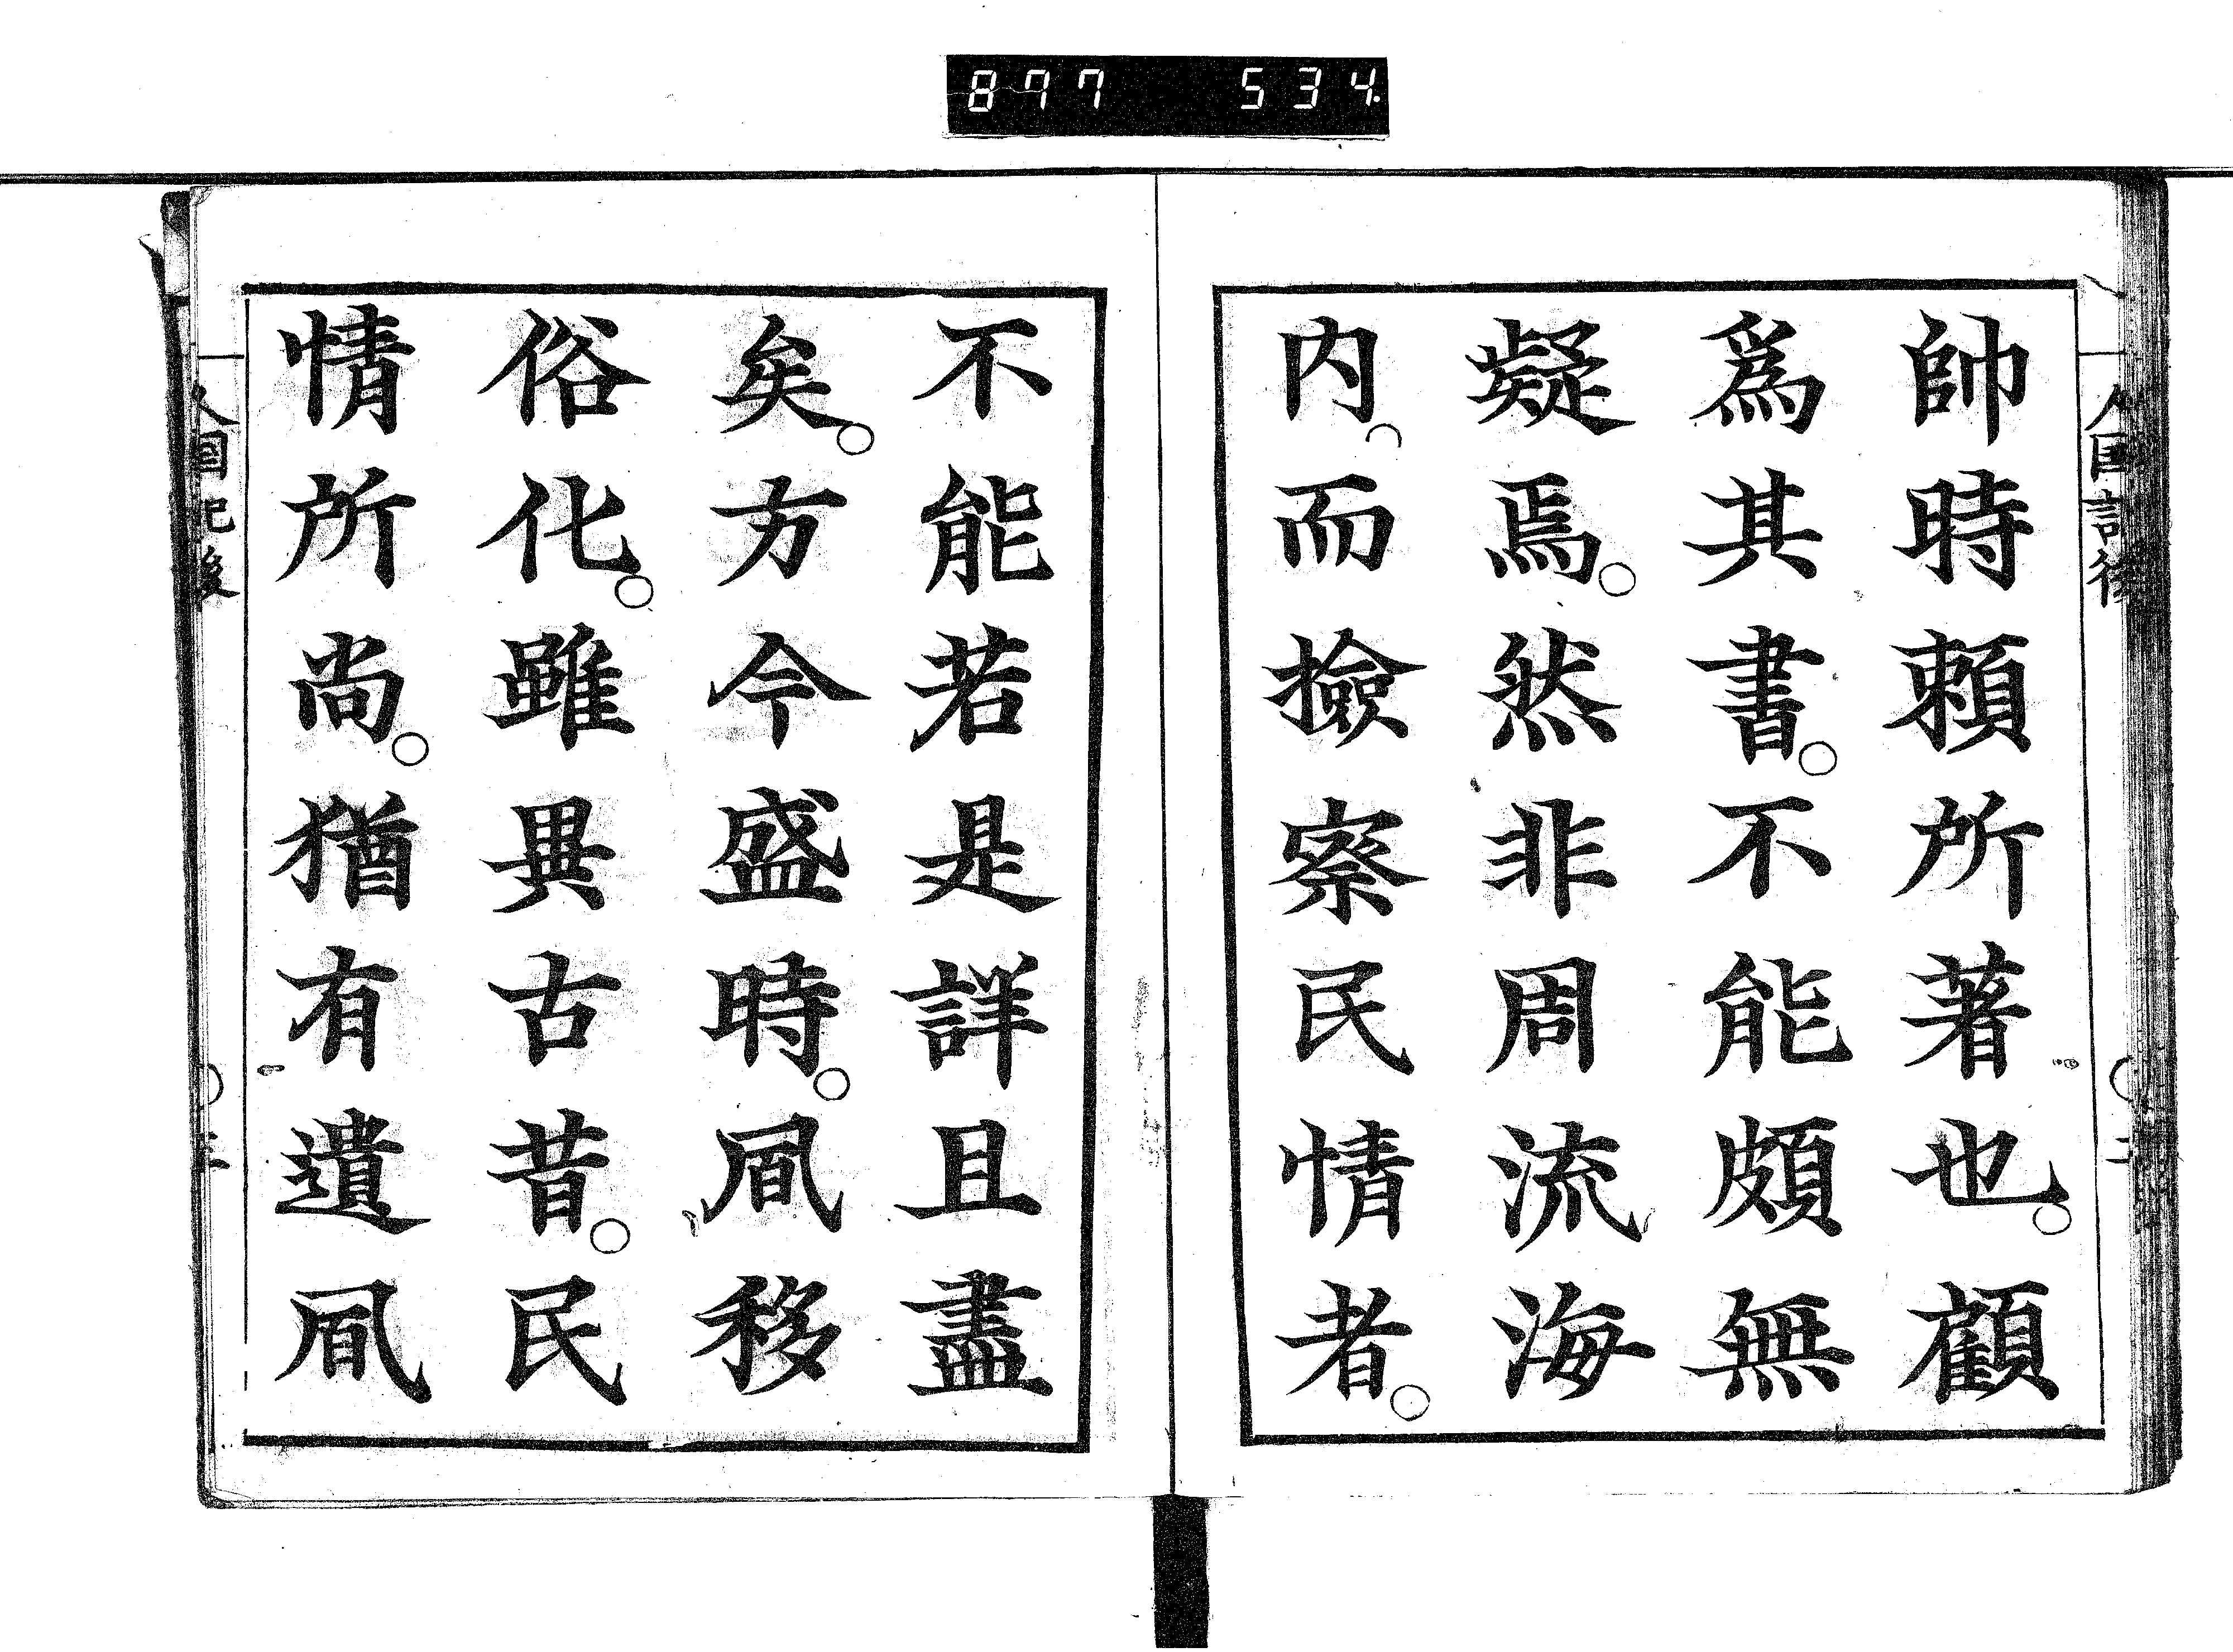 877 534.
帥時頼所著也。顧
爲其書。不能頗無
疑焉。然非周流海
内。而撿察民情者。
不能若是詳且盡
矣。方今盛時。凬移
俗化。雖異古昔。民
情所尚。猶有遺凬
人国記後
人国記後